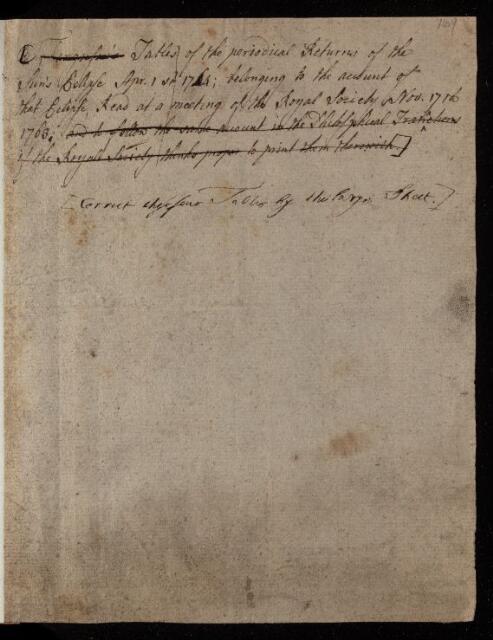 Tables of the periodical Returns of the
Sun's Eclipse Apr. 1 st 1764; belonging to the account of
that Eclipse, Read at a meeting of the Royal Society, Nov. 17th
1763. and to follow the same account in the Philosophical Transactions
if the Royal Society thinks proper to print them therewith.]
[Correct these four Tables by the large Sheet.]